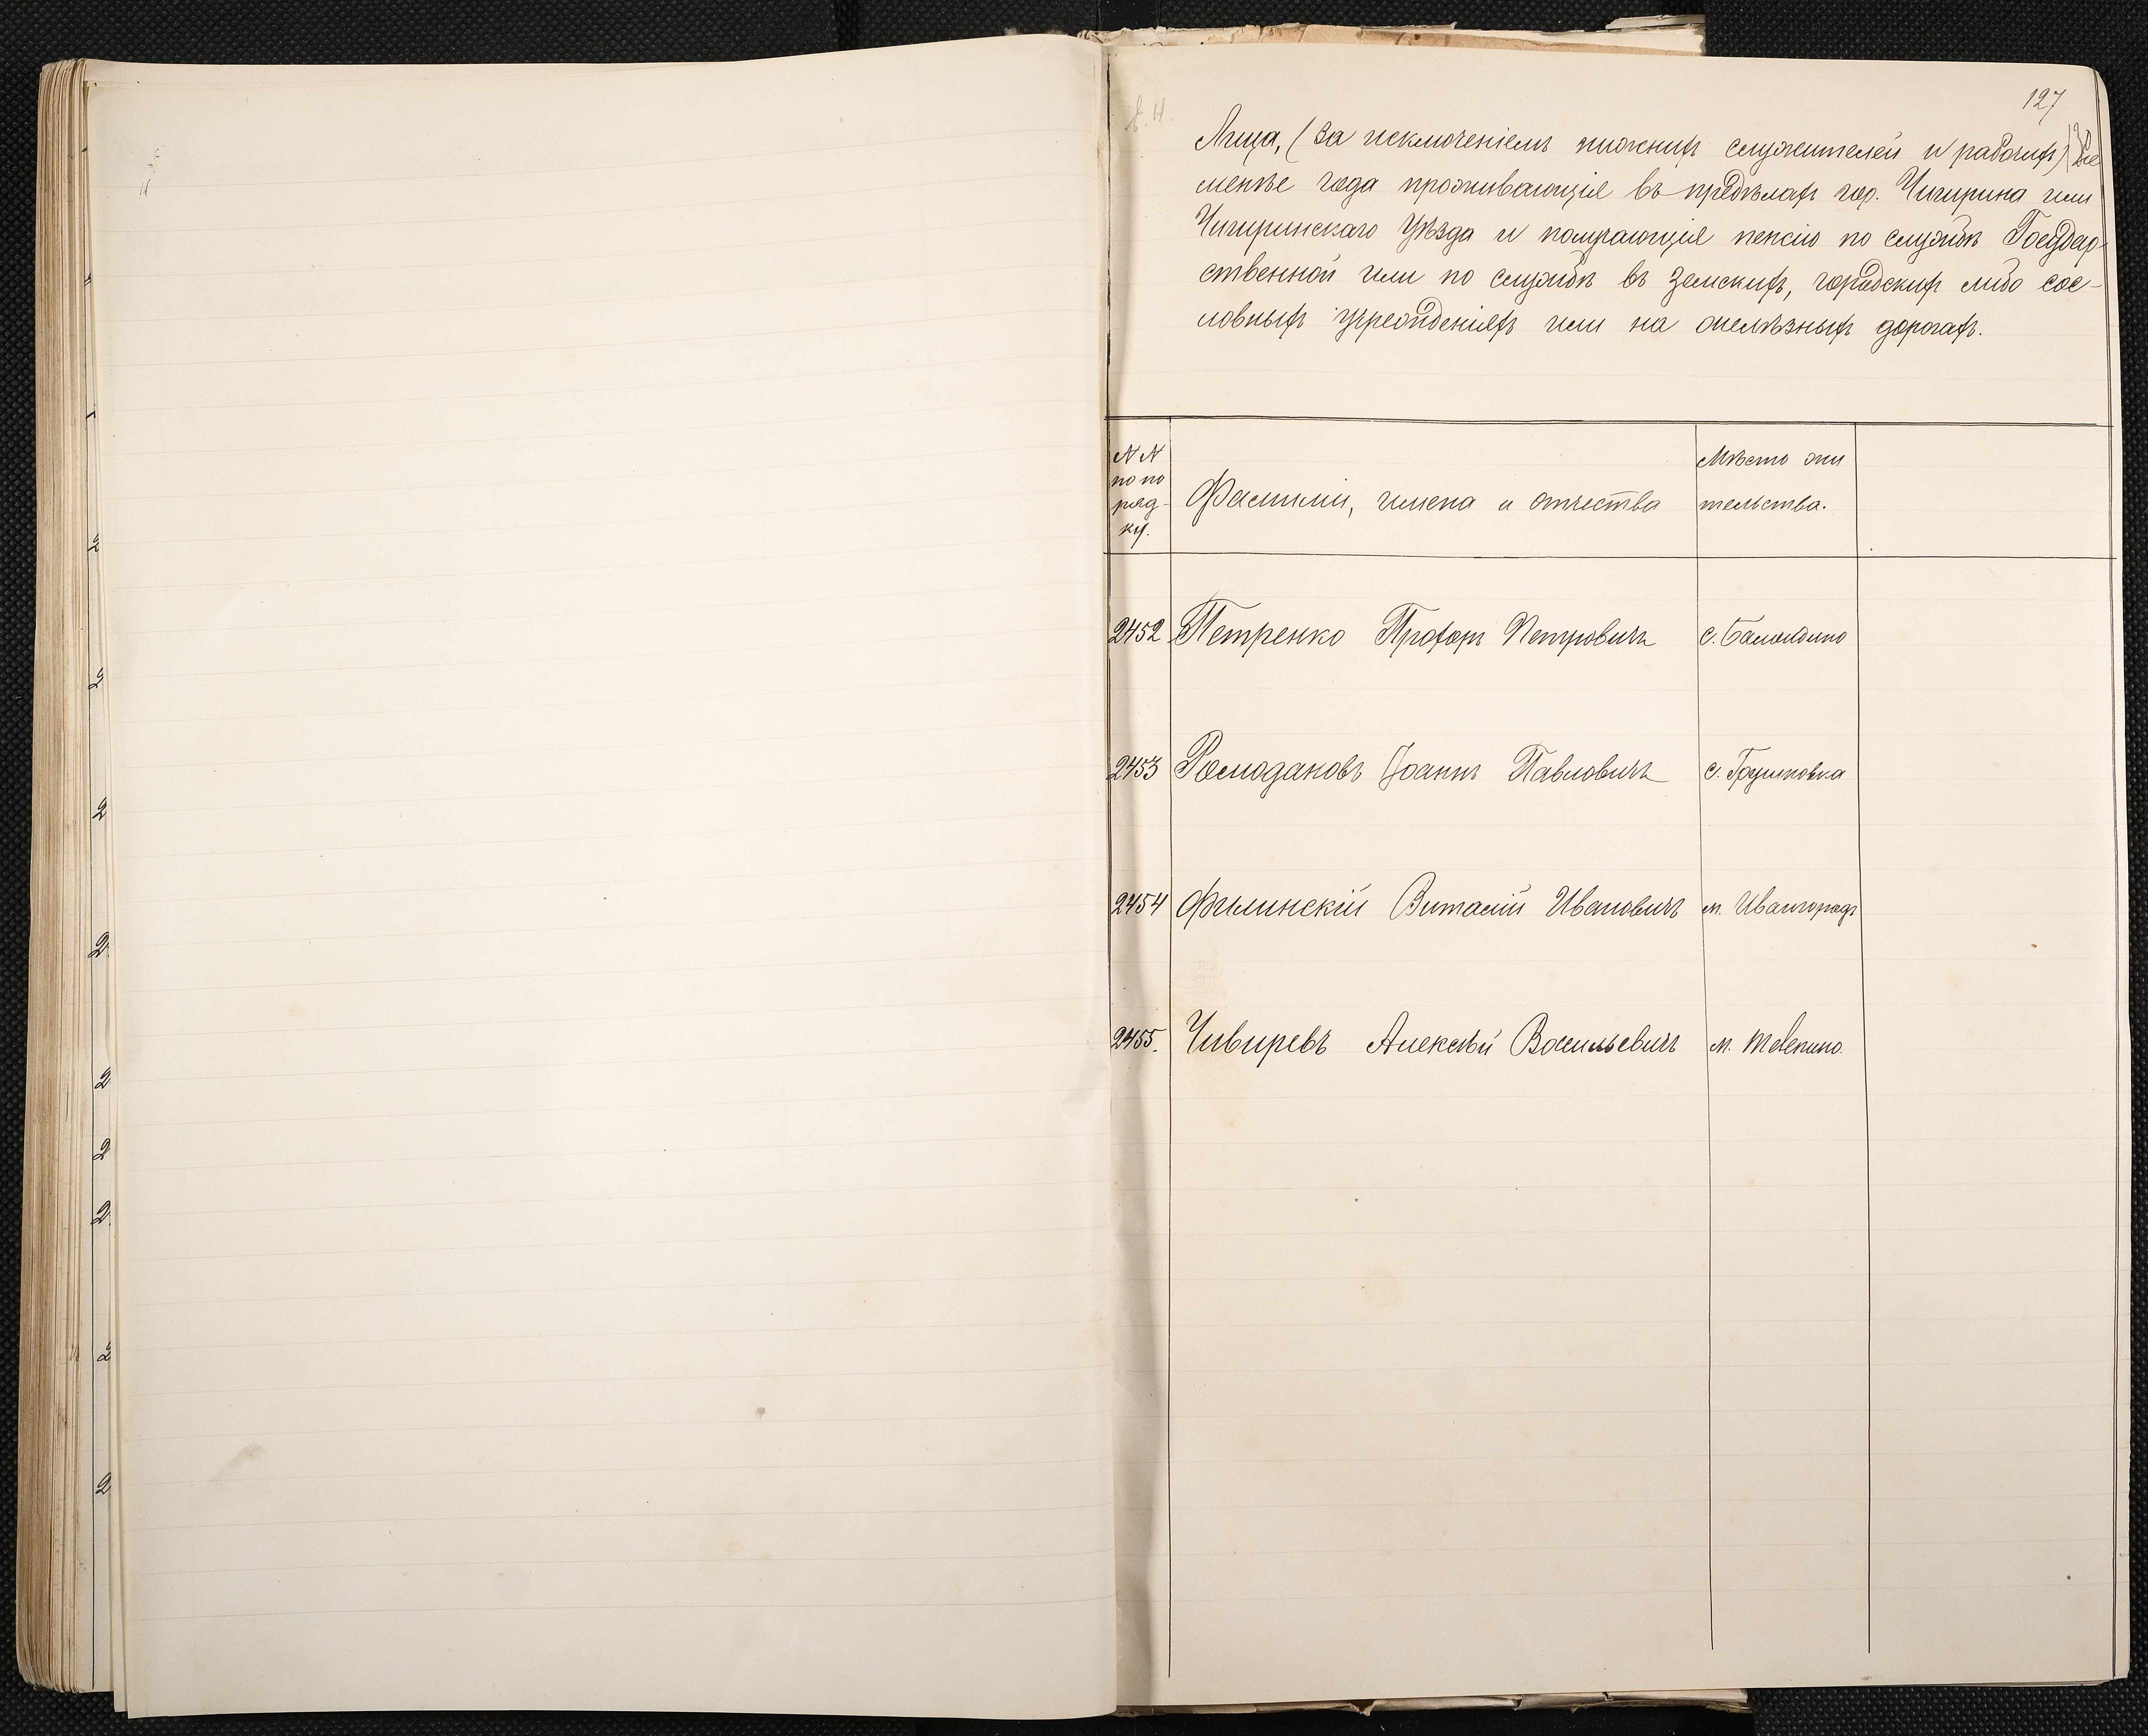 127
Лица, (за исключеніемъ нижнихъ служителей и рабочихъ) не
менѣе года проживающія въ предѣлахъ гор. Чигирина или
Чигиринскаго Уѣзда и получающія пенсію по службѣ Государ-
ственной или по службѣ въ Земскихъ, городскихъ либо сос-
ловныхъ учрежденіяхъ или на желѣзныхъ дорогахъ.
N N
по по
ряд-
ку.
Фамиліи, имена и отчества
Мѣсто жи
тельства.
2452 Петренко Прохоръ Петровичъ с. Баландино
2453 Ромодановъ Іоаннъ Павловичъ с. Грушковка
2454 Филинскій Виталій Ивановичъ м. Ивангородъ
2455. Чивиревъ Алексѣй Васильевичъ м. Телепино.